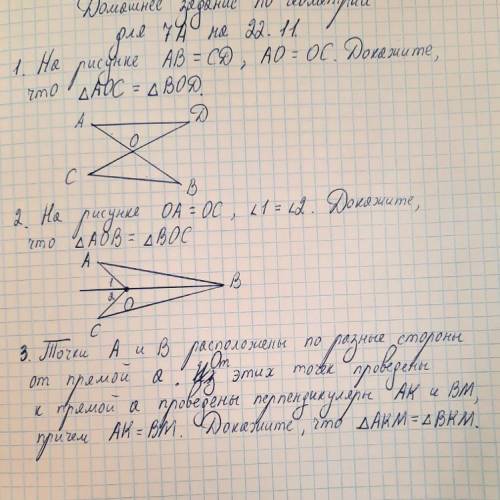 Домашнее задание по геометрии
для 7А на 22.11.
1. На рисунке AB = CD, AO = OC. Докажите,
что △AOC = △BOD.
A D
O
C B
2. На рисунке OA = OC, ∠1 = ∠2. Докажите,
что △AOB = △BOC
A
1 B
2 O
C
3. Точки A и B расположены по разные стороны
от прямой a. От этих точек проведены
к прямой a проведены перпендикуляры AK и BM,
причем AK = BM. Докажите, что △AKM = △BKM.